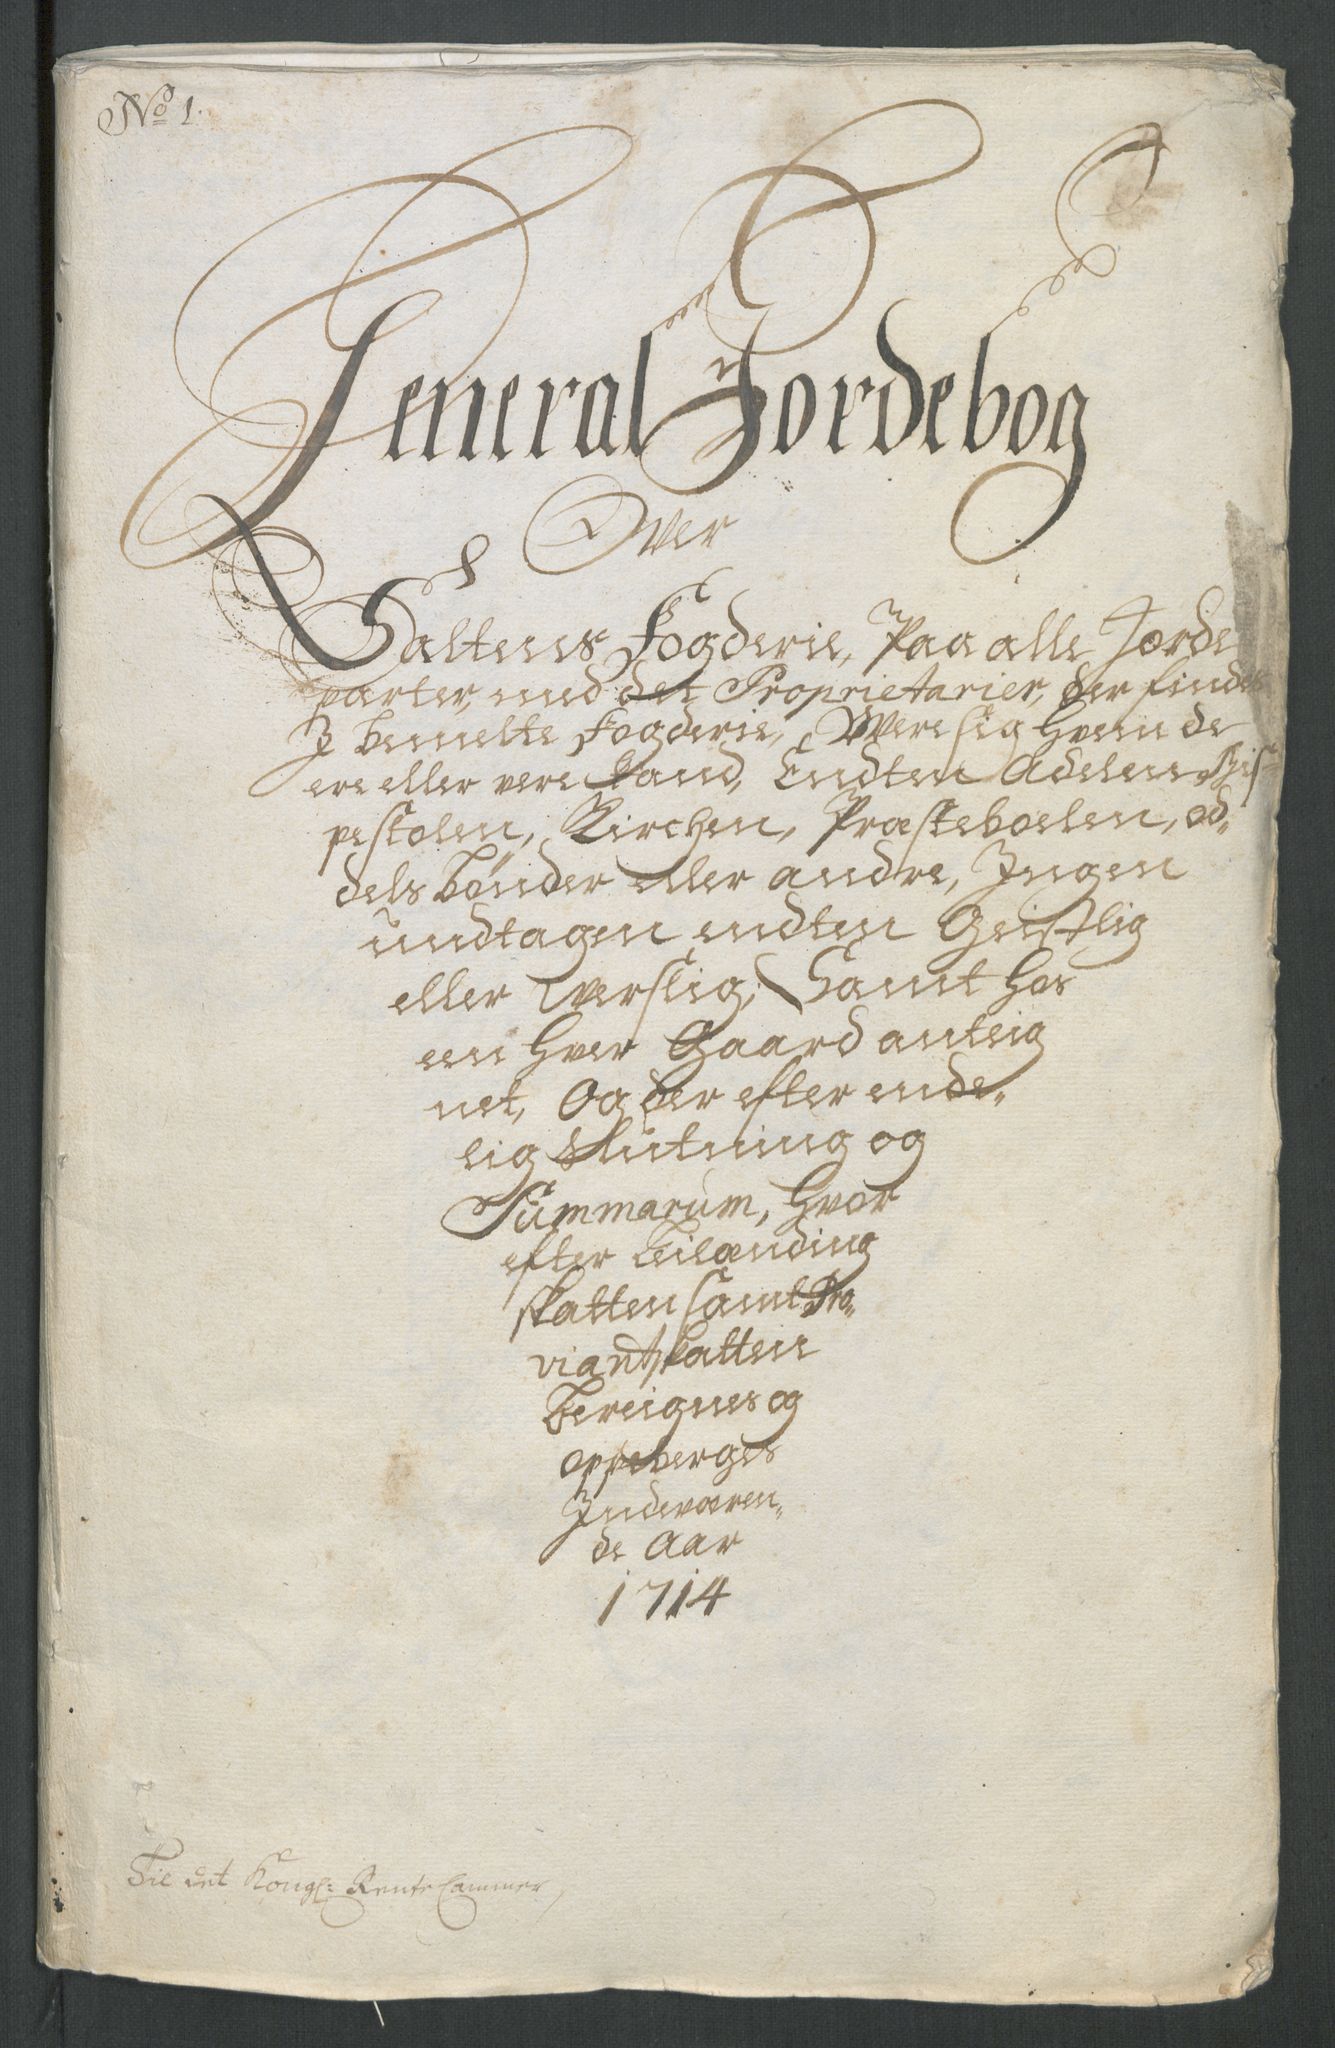 No 1.
General Jordebog
Over
Saltens Fogderie, Paa alle Jorde
parter, med det Proprietarier, der findes
J bemelte Fogderie, Were sig Hvem de
ere eller vere kand, Endten Adelen, Bis-
pestolen, Kirchen, Præsteboelen, od-
dels bønder eller andre, Ingen
undtagen endten Geistlig
eller Verslig, Samt hos
een hver Gaard anteig
net, Og der efter ende-
lig Slutning og
Summarum, hvor
efter Leilænding
skatten samt Pro-
viantskatten
bereignes og
oppeberges
Indeværen-
de Aar
1714
Til det Kongl: Rente Cammer,